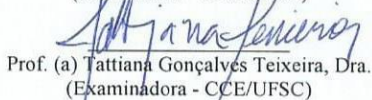 Tattiana Teixeira
Prof. (a) Tattiana Gonçalves Teixeira, Dra.
(Examinadora - CCE/UFSC)